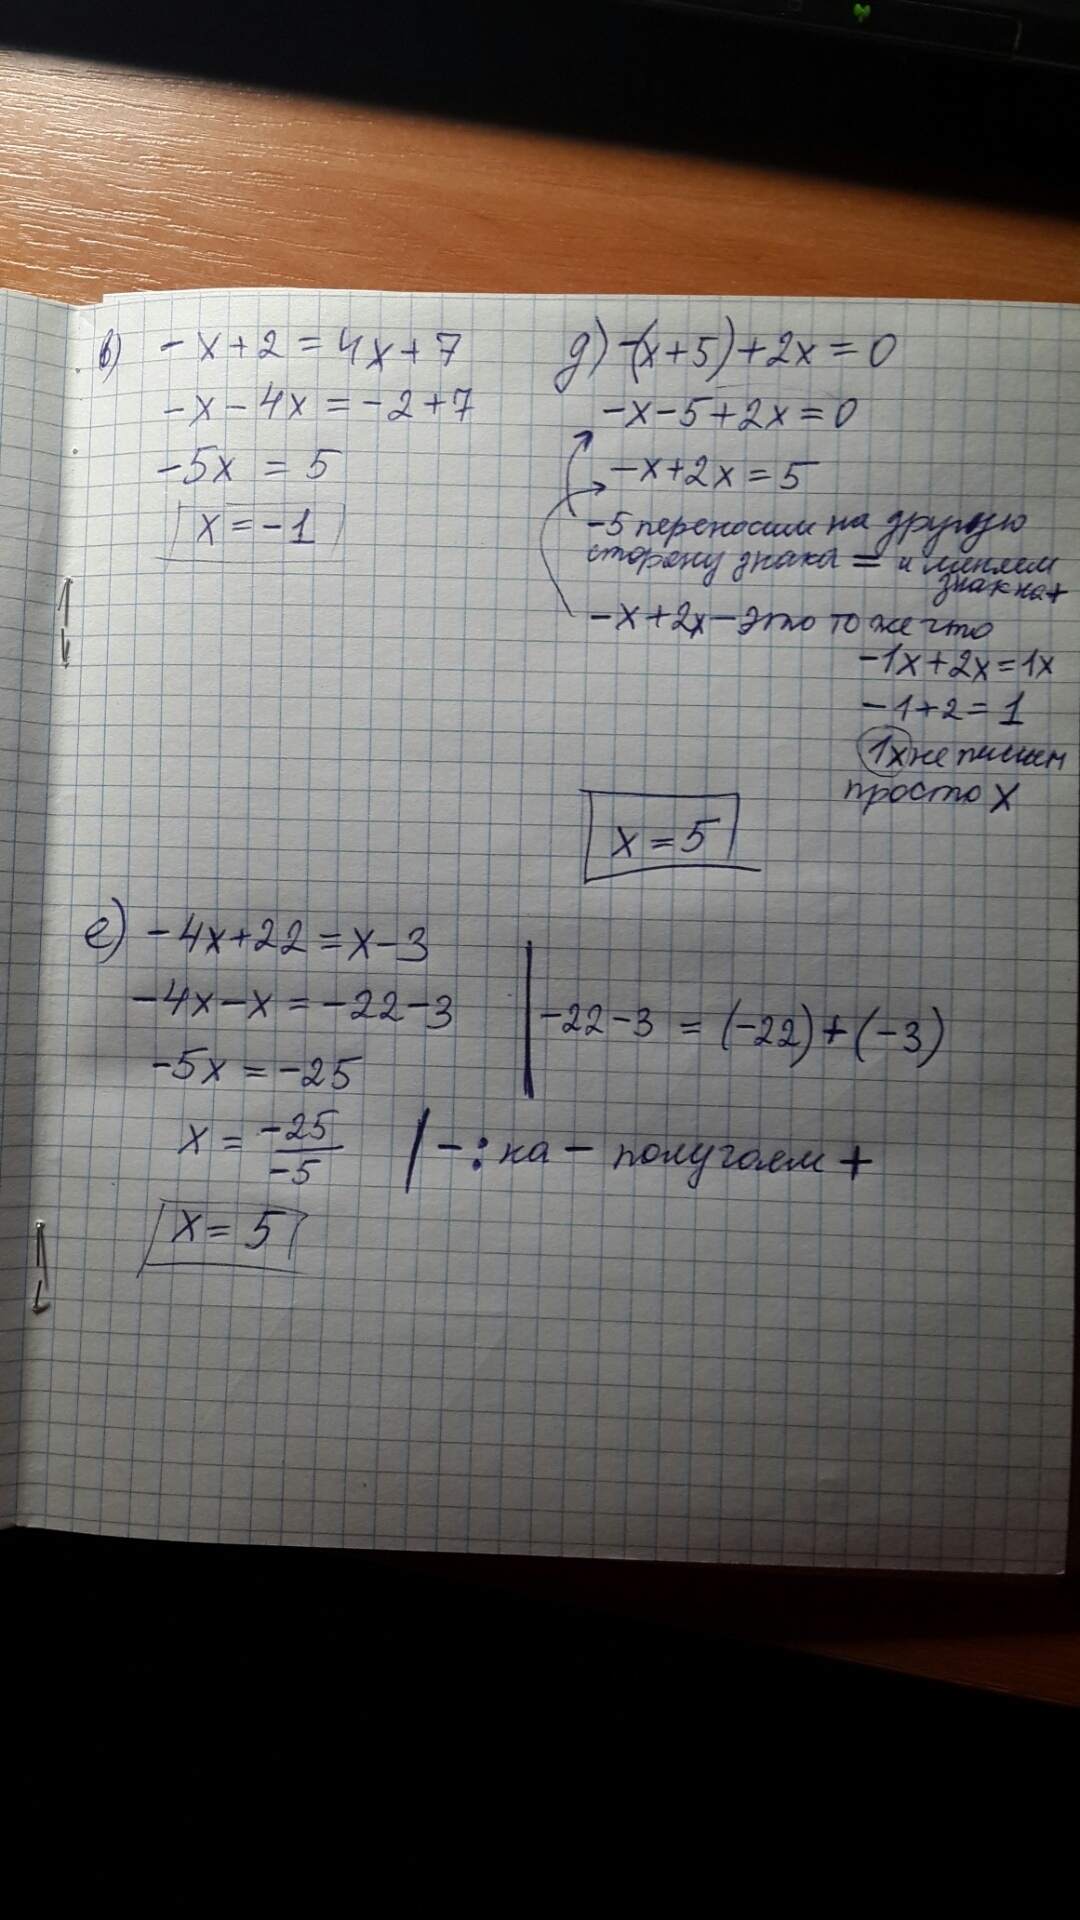 в) -x+2=4x+7
-x-4x=-2+7
-5x = 5
x=-1
д) -(x+5)+2x=0
-x-5+2x=0
-x+2x=5
-5 переносим на другую
сторону знака = и меняем
знак на +
-x+2x - это то же что
-1x+2x=1x
-1+2=1
1x не пишем
просто x
x=5
е) -4x+22=x-3
-4x-x=-22-3
-22-3 = (-22)+(-3)
-5x=-25
x = -25/-5
- : на - получаем +
x= 5